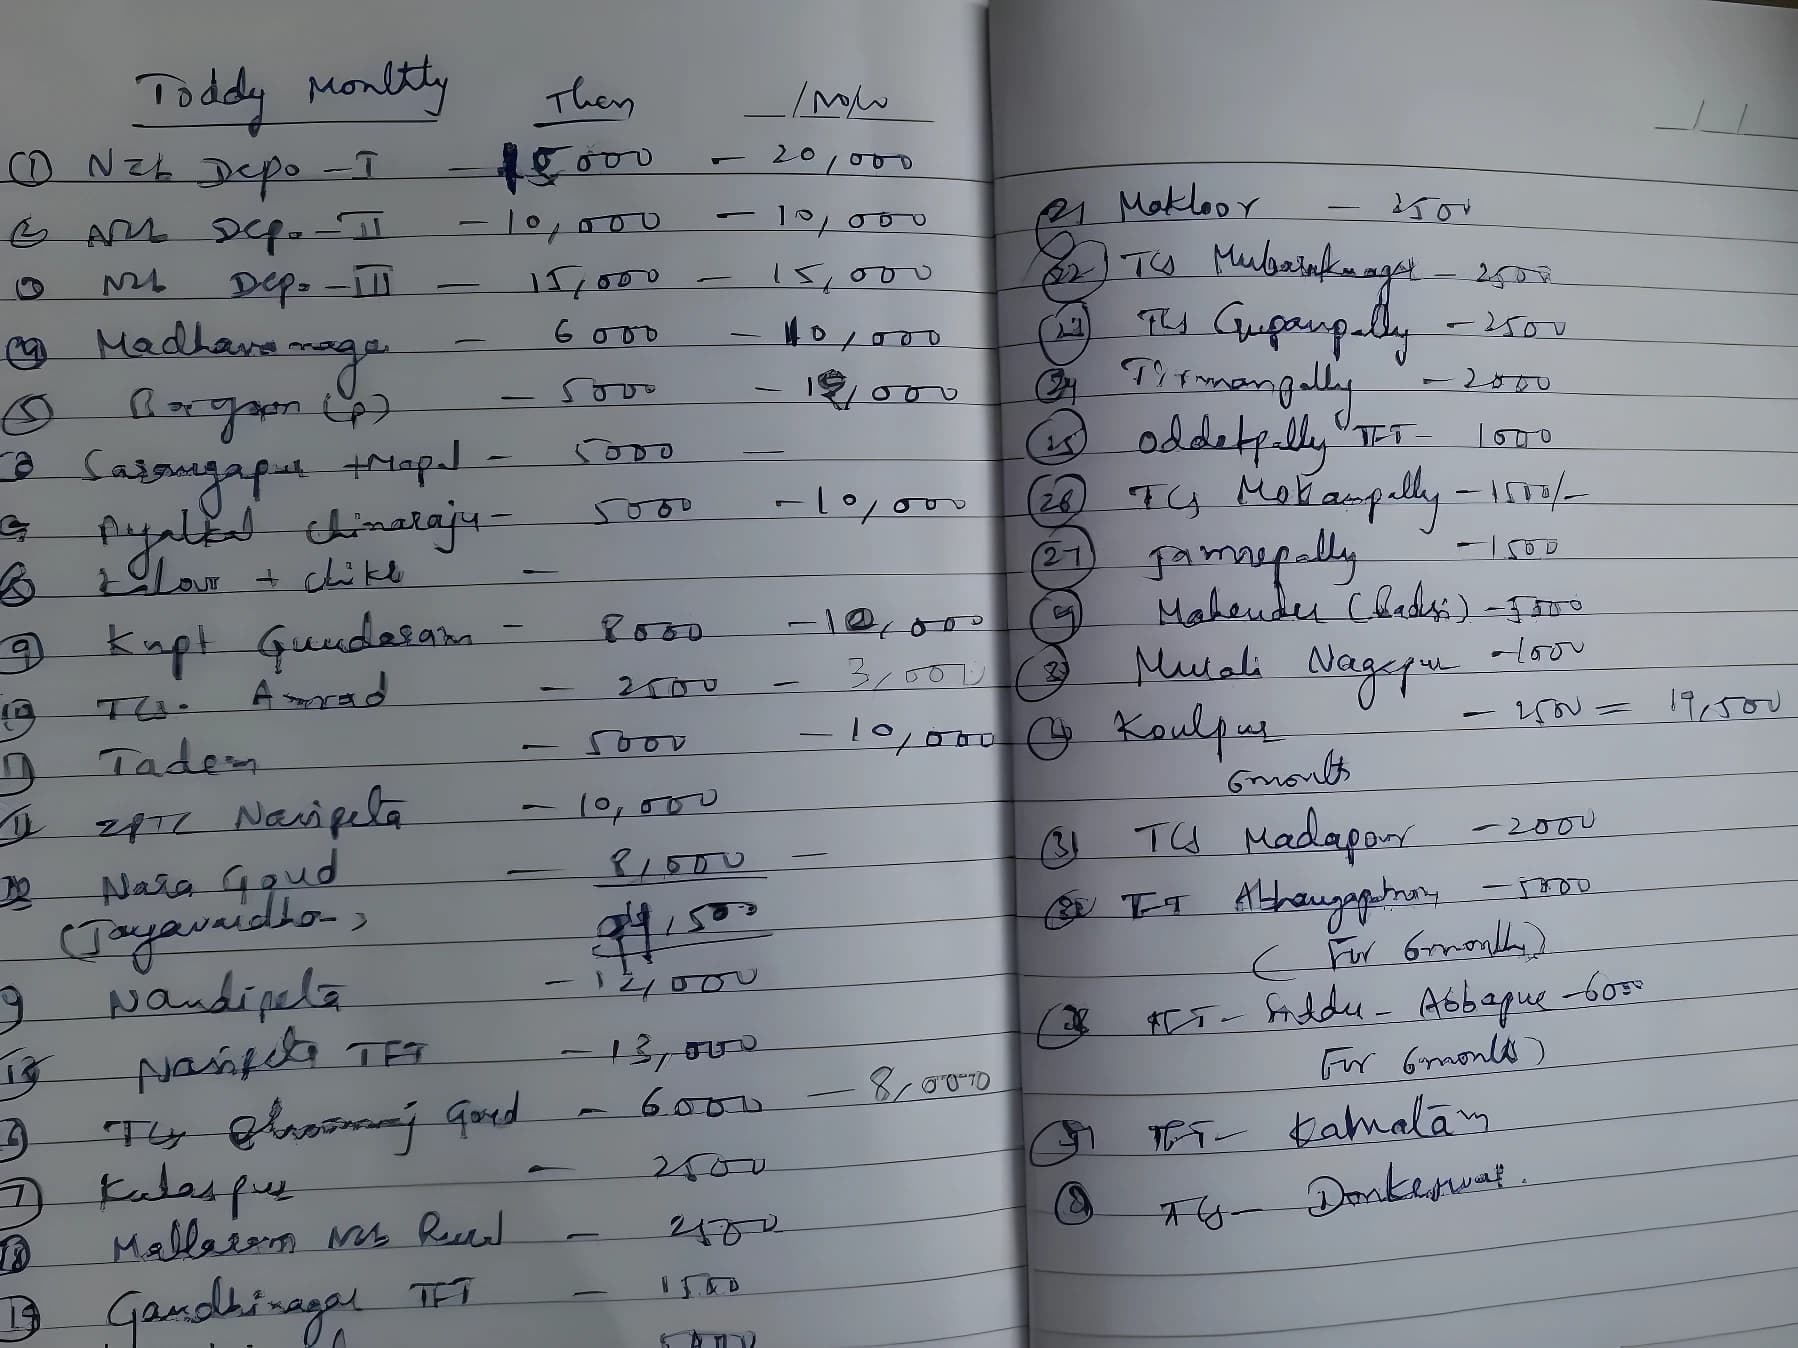 Toddy Monthly Then / Now
① Nzb Depo - I - 15000 - 20,000
② Nzb Depo - II - 10,000 - 10,000
③ Nzb Depo - III - 15,000 - 15,000
④ Madhavanagar - 6000 - 10,000
⑤ Borgaon (P) - 5000 - ,000
Sarangapur + Mopal - 5000 -
Chinaraju - 5000 - 10,000
⑧ +
⑨ Knpt Gundaram - 8000 - 10,000
⑩ TCS. Amrad - 2500 - 3,000
⑪ Tadem - 5000 - 10,000
ZPTC Navipeta - 10,000
Nasa Goud - 8,000 -
,500
Nandipeta - 12,000
Navipeta TFT - 13,000
TCS Goud - 6000 - 8,000
Kalaspur - 2500
⑱ Mallaram Nzb Rural - 2500
⑲ Gandhinagar TFT - 1500
21 Makloor - 2500
㉒ TCS Mubaraknagar - 2500
㉓ TCS Gupanpally - 2500
㉔ Tirmanpally - 2000
㉕ TFT - 1000
㉖ TCS Mokanpally - 1500/-
㉗ Jamnepally - 1500
Mahender (Badsi) - 5500
Murali Nagepur - 1000
④ Koulpur - 2500 = 19,500
6 months
㉛ TCS Madapour - 2000
TFT Abhangapatnam - 5000
( For 6 months)
TFT - Siddu - Abbapur - 6000
For 6 months)
TFT - Kalmalam
TCS - Donkeswar.